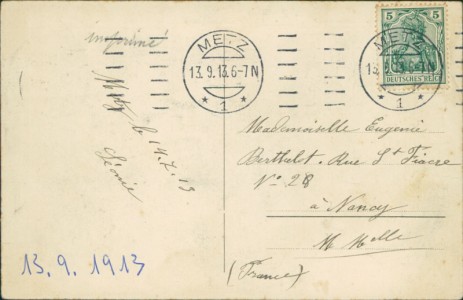 imprimé
METZ
13.9.13.6-7N
* 1 *
METZ
13.9.13.6-7N
* 1 *
5 5
DEUTSCHES REICH
Metz le 14.7.13
Léonie
Mademoiselle Eugenie
Berthelot. Rue St Fiacre
No 28
à Nancy
M Melle
(France)
13.9.1913